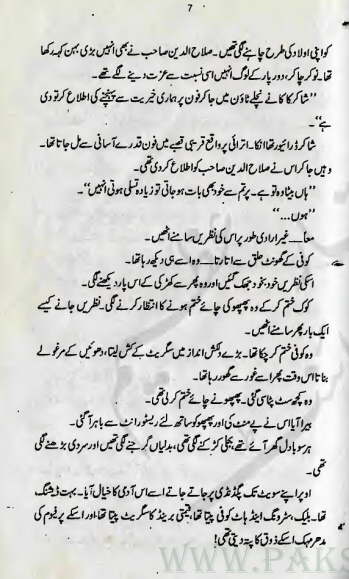 7
کو اپنی اولاد کی طرح چاہنے لگی تھیں۔ صلاح الدین صاحب نے بھی انہیں بڑی بہن کہہ رکھا
تھا۔ نوکر چاکر، دور پار کے لوگ انہیں اسی نسبت سے عزت دینے لگے تھے۔
”شاکر کاکا نے نچلے ٹاؤن میں جا کر فون پر ہماری خیریت سے پہنچنے کی اطلاع کر تو دی
ہے“۔
شاکر ڈرائیور تھا انکا۔ اترائی پر واقع قریبی قصبے میں فون قدرے آسانی سے مل جاتا تھا۔
وہیں جا کر اس نے صلاح الدین صاحب کو اطلاع کر دی تھی۔
”ہاں بیٹا وہ تو ہے۔ پر تم سے خود بھی بات ہو جاتی تو زیادہ تسلی ہوتی انہیں“۔
”ہوں...“
معاً۔۔۔ غیر ارادی طور پر اس کی نظریں سامنے اٹھیں۔
کوفی کے گھونٹ حلق سے اتارتا۔۔۔ وہ اسے ہی دیکھ رہا تھا۔
اسکی نظریں خود بخود جھک گئیں اور وہ پھر سے کھڑکی کے اس پار دیکھنے لگی۔
کوک ختم کر کے وہ پھپھو کی چائے ختم ہونے کا انتظار کرنے لگی۔ نظریں جانے کیسے
ایک بار پھر سامنے اٹھیں۔
وہ کوفی ختم کر چکا تھا۔ بڑے دلکش انداز میں سگریٹ کے کش لیتا، دھوئیں کے مرغولے
بناتا اس وقت پھر اسے غور سے گھور رہا تھا۔
وہ کچھ سٹ پٹا سی گئی۔ پھپھو نے چائے ختم کر لی تھی۔
بیرا آیا اس نے پے منٹ کی اور پھپھو کو ساتھ لئے ریسٹورانٹ سے باہر آ گئی۔
ہر سو بادل گھر آئے تھے، بجلی کڑکنے لگی تھی، بدلیاں گرجنے لگی تھیں اور سردی بڑھنے لگی
تھی۔
اوپر اپنے سویٹ تک پگڈنڈی پر جاتے جاتے اسے اس آدمی کا خیال آیا۔ بہت ڈیشنگ
تھا۔ بلیک، سٹرونگ اینڈ ہاٹ کوفی پیتا تھا، قیمتی برینڈ کا سگریٹ پیتا تھا، اور اسکے پرفیوم کی
مدھر مہک اسکے ذوق کا پتہ دیتی تھی!
WWW.PAKS